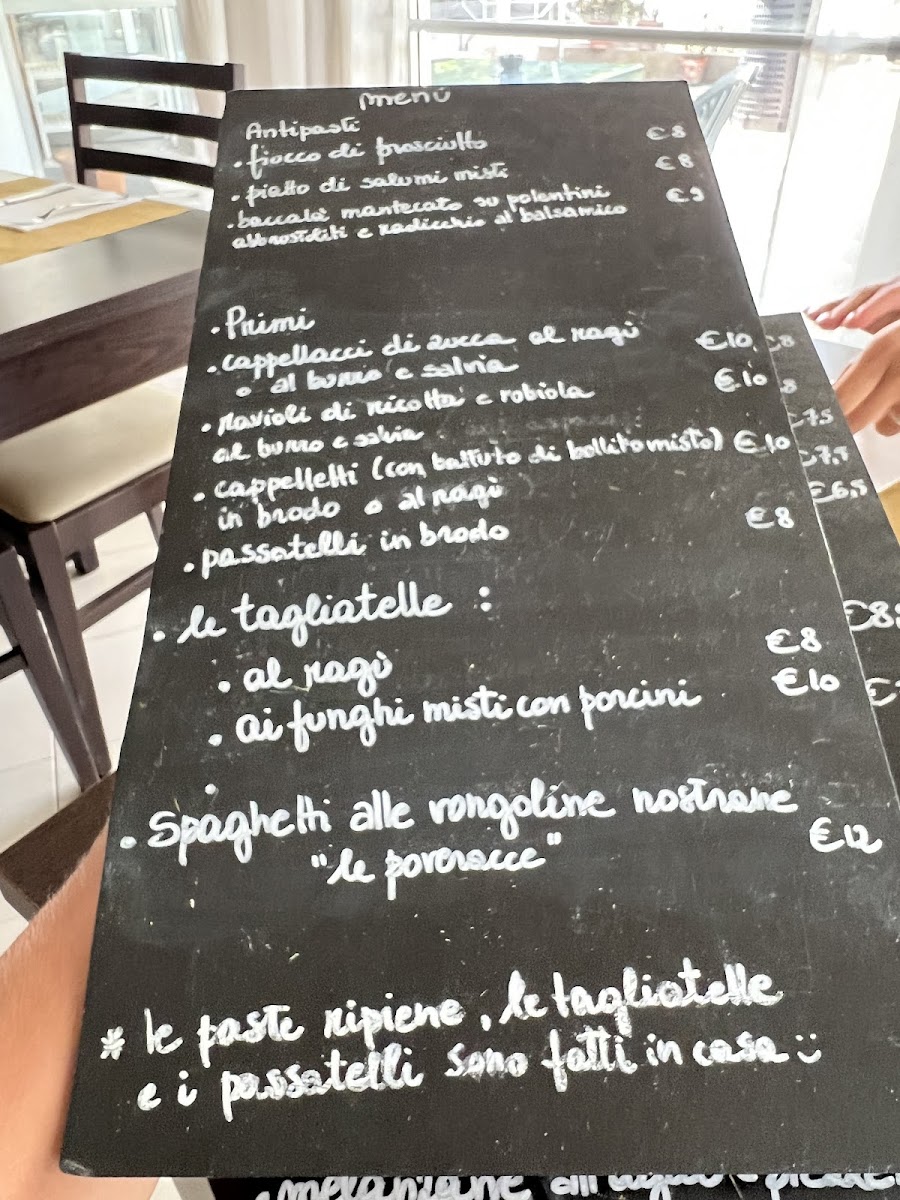 menù
Antipasti
• fiocco di prosciutto €8
• piatto di salumi misti €8
• baccalà mantecato su polentini €9
abbrostiliti e radicchio al balsamico
• Primi
• cappellacci di zucca al ragù €10,
o al burro e salvia
• ravioli di ricotta e robiola €10
al burro e salvia
• cappelletti (con battuto di bollito misto) €10
in brodo o al ragù
• passatelli in brodo €8
• le tagliatelle :
• al ragù €8
• ai funghi misti con porcini €10
• Spaghetti alle vongoline nostrane
"le poveracce" €12
* le paste ripiene, le tagliatelle
e i passatelli sono fatti in casa :)
€8
8
7,5
7,5
€6,5
€8
melanzane all